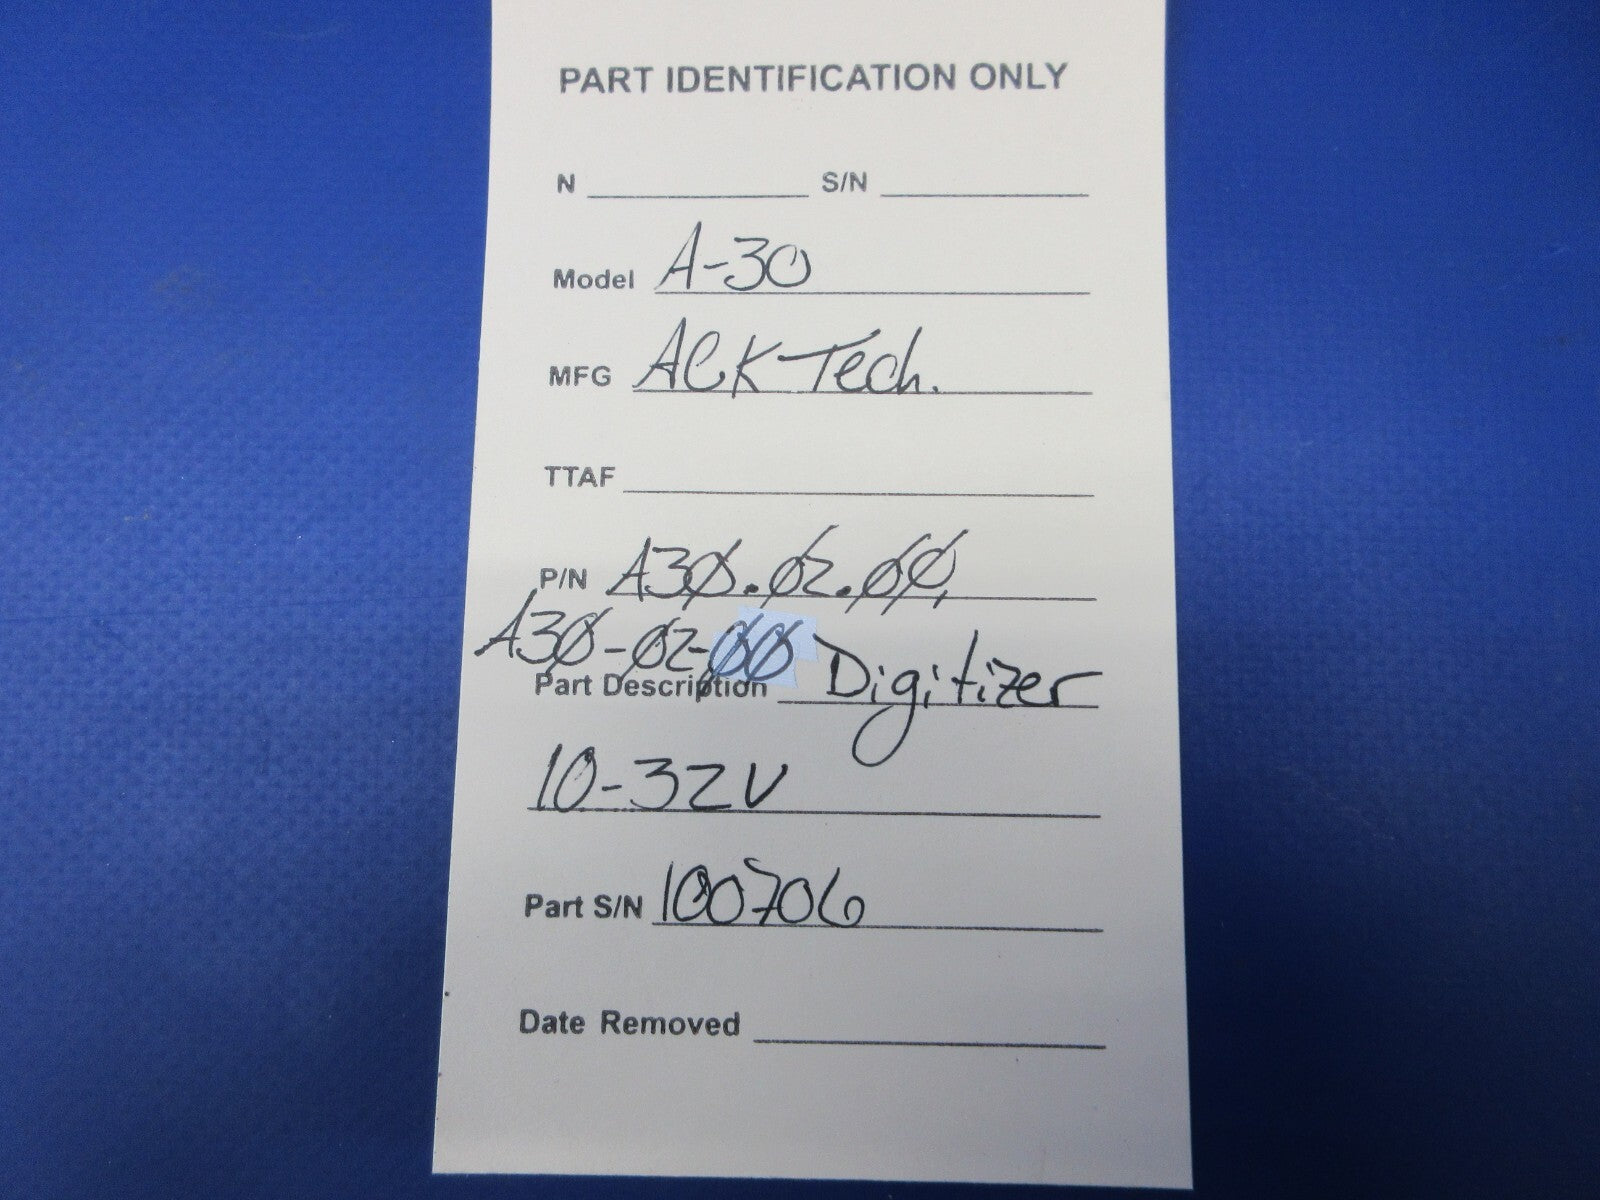 PART IDENTIFICATION ONLY
N S/N
Model A-30
MFG ACK Tech.
TTAF
P/N A30.02.00,
A30-02-00
Part Description Digitizer
10-32V
Part S/N 100706
Date Removed